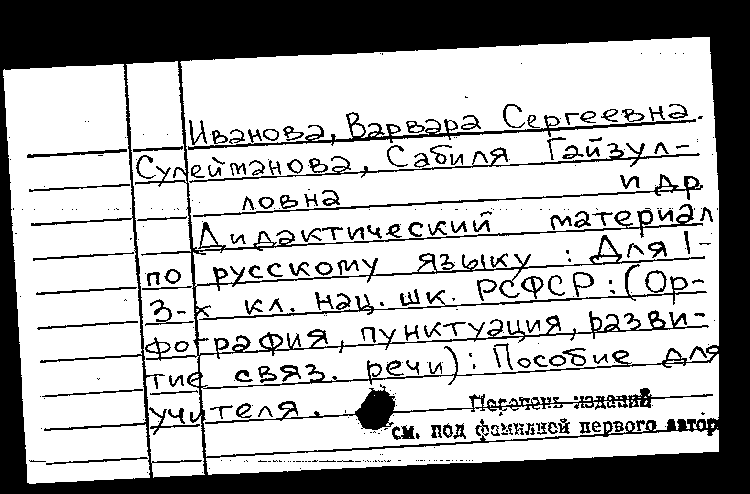 Иванова, Варвара Сергеевна.
Сулейманова, Сабиля Гайзул-
ловна и др
Дидактический материал
по русскому языку : Для 1-
3-х кл. нац. шк. РСФСР : (Ор-
фография, пунктуация, разви-
тие связ. речи) : Пособие для
учителя.
Перечень изданий
см. под фамилией первого автор